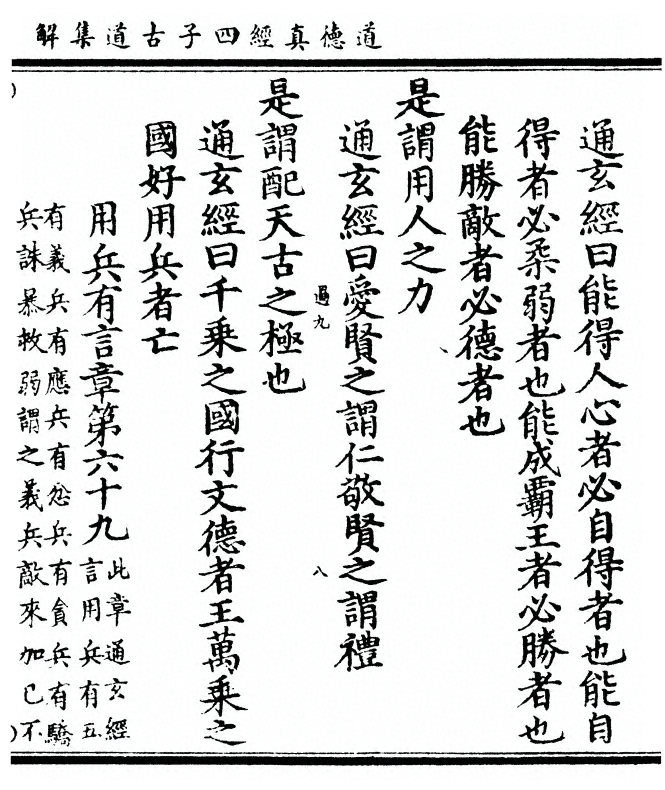 道德真經四子古道集解
通玄經曰能得人心者必自得者也能自
得者必柔弱者也能成霸王者必勝者也
能勝敵者必德者也
是謂用人之力
通玄經曰愛賢之謂仁敬賢之謂禮
過九
八
是謂配天古之極也
通玄經曰千乘之國行文德者王萬乘之
國好用兵者亡
用兵有言章第六十九
此章通玄經
言用兵有五
有義兵有應兵有忿兵有貪兵有驕
兵誅暴救弱謂之義兵敵來加己不